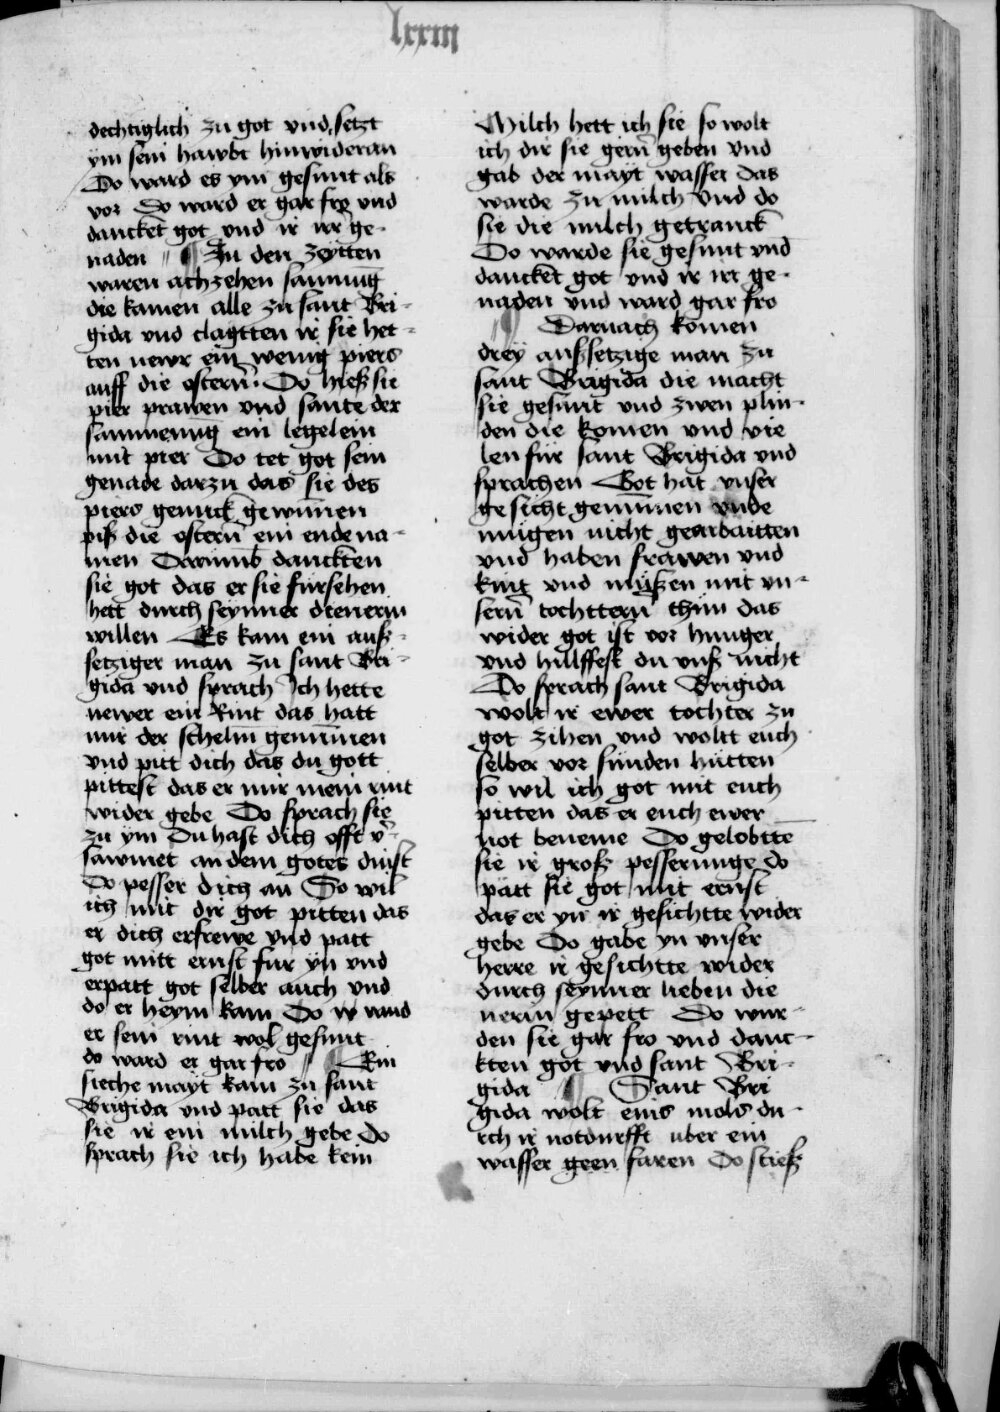 lxxiii
dechtiglich zu got vnd setzt
ym sein hawbt hinwideran
Do ward es ym gesunt als
vor Do ward er gar fro vnd
dancket got vnd ir irr ge-
naden // ¶ In den zeytten
waren achzehen samung
die kamen alle zu sant Bri-
gida vnd clagtten ir sie het-
ten newr ein wenig piers
auff die ostern̄ Do hieß sie
pier prawen vnd sante der
sammenung ein legelein
mit pier Do tet got sein
genade darzu das sie des
piers genuck gewunnen
piß die ostern̄ ein ende na-
men Darumb danckten
sie got das er sie fursehen
hett durch seynner dienerin
willen Es kam ein auß-
setziger man zu sant Bri-
gida vnd sprach Ich hette
newer ein Rint das hatt
mir der schelm genummen
vnd pitt dich das du gott
pittest das er mir mein rint
wider gebe Do sprach sie
zu ym Du hast dich offt v̄-
sawmet an dem gotes dinst
Do pesser dich an So wil
ich mit dir got pitten das
er dich erfrewe vnd patt
got mitt ernst fur yn vnd
erpatt got selber auch vnd
do er heym kam Do w vand
er sein rint wol gesunt
do ward er gar fro // ¶ Ein
sieche mayt kam zu sant
Brigida vnd patt sie das
sie ir ein milch gebe Do
sprach sie ich habe kein
Milch hett ich sie so wolt
ich dir sie gern̄ geben vnd
gab der mayt wasser das
warde zu milch vnd do
sie die milch getranck
Do warde sie gesunt vnd
dancket got vnd ir irr ge-
naden vnd ward gar fro
// ¶ Darnach komen
drey außsetzige man zu
sant Brigida die macht
sie gesunt vnd zwen plin-
den die komen vnd vie
len für sant Brigida vnd
sprachen Got hat vnser
gesicht genummen vnde
mugen nicht gearbaitten
vnd haben frawen vnd
kint vnd müßen mit vn-
sern̄ tochttern̄ thun das
wider got ist vor hunger
vnd hilffest du vnß nicht
Do sprach sant Brigida
wolt ir ewer tochter zu
got zihen vnd woltt euch
selber vor sunden hütten
so wil ich got mit euch
pitten das er euch ewer
not beneme Do gelobtte
sie ir groß pesserunge do
patt sie got mit ernst
das er yn ir gesichtte wider
gebe Do gabe yn vnser
herre ir gesichtte wider
durch seynner lieben die
nerin gepett Do wur-
den sie gar fro vnd danc-
kten got vnd sant Bri-
gida ¶ Sant Bri
gida wolt eins mols du-
rch ir notdurfft uber ein
wasser geen faren Do stieß